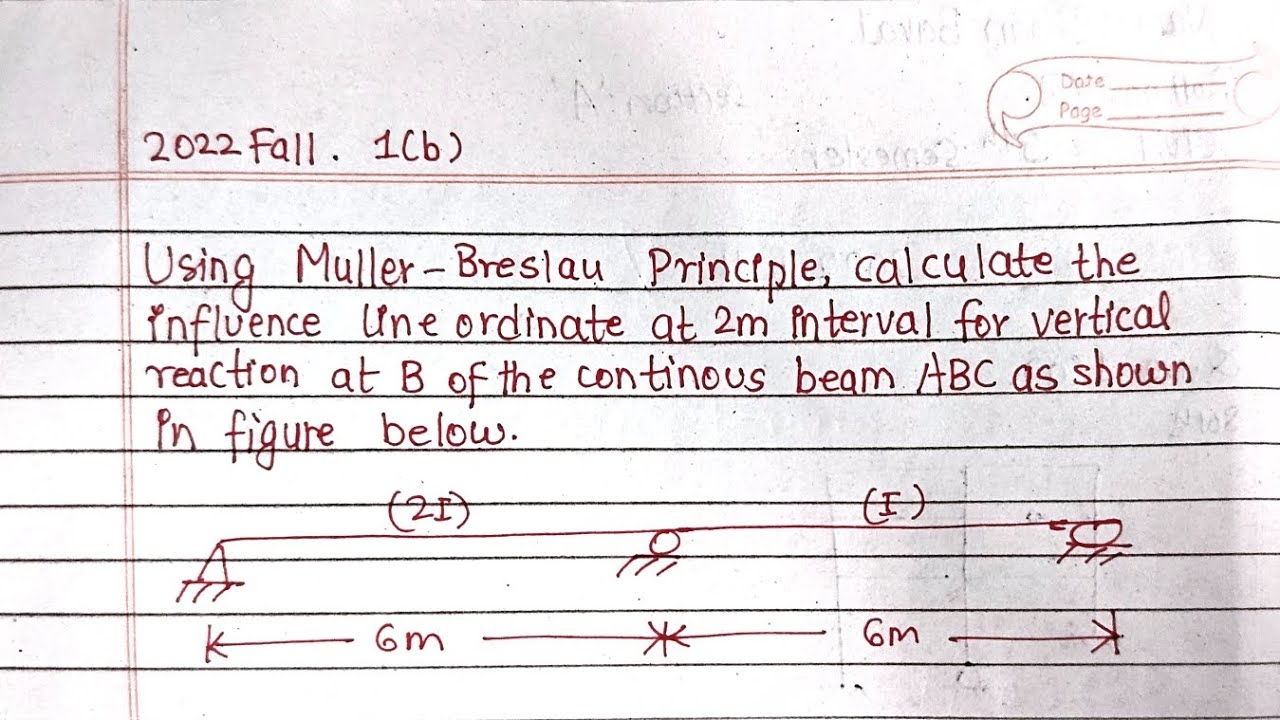 Date
Page
2022 Fall. 1(b)
Using Muller-Breslau Principle, calculate the
influence line ordinate at 2m interval for vertical
reaction at B of the continous beam ABC as shown
in figure below.
(2I) (I)
6m 6m